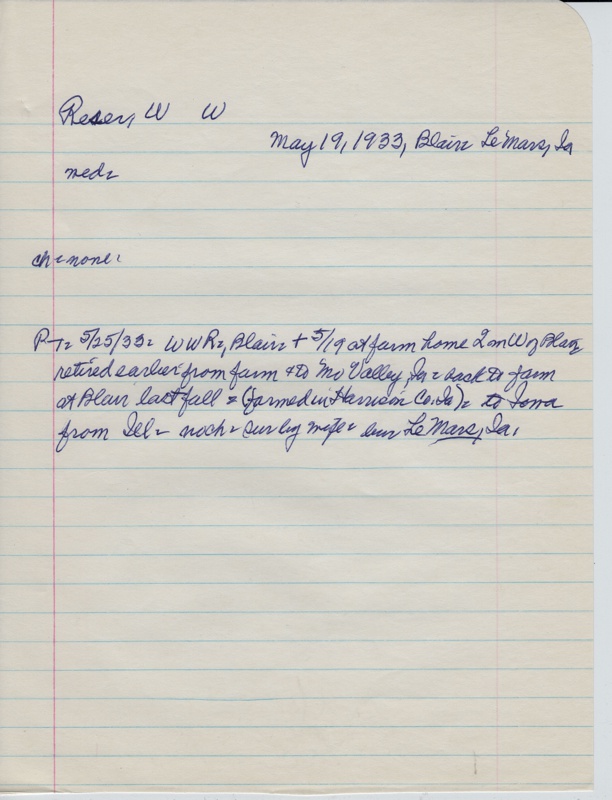 Reser, W W
May 19, 1933, Blair = LeMars, Ia
med =
ch = none =
P-T = 5/25/33 = WWR =, Blair = + 5/19 at farm home 2 m W of Blair
retired earlier from farm + to Mo Valley, Ia = back to farm
at Blair last fall = (farmed in Harrison Co. Ia) = to Iowa
from Ill = no ch = sur by wife = bur LeMars, Ia.